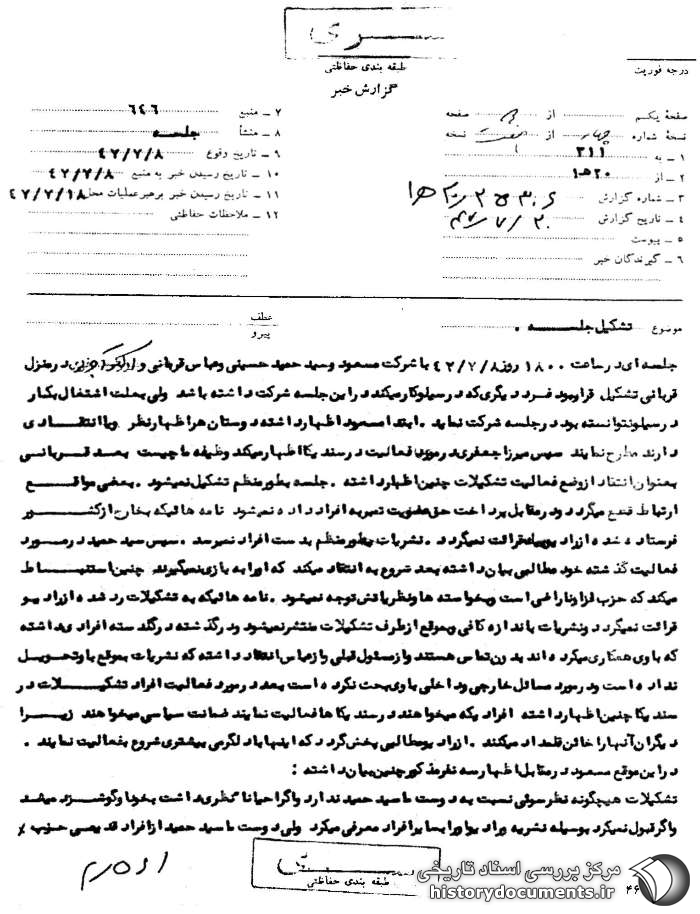 سری
طبقه بندی حفاظتی
گزارش خبر
درجه فوریت
صفحهٔ یکم از صفحه
نسخهٔ شماره چهار از هفت نسخه
۱ ـ به ۳۱۱
۲ ـ از ۲۰هـ۱
۳ ـ شماره گزارش
۴ ـ تاریخ گزارش ۴۷/۷/۲۰
۵ ـ پیوست
۶ ـ گیرندگان خبر
۷ ـ منبع ۶۴۶
۸ ـ منشأ جلسه
۹ ـ تاریخ وقوع ۴۷/۷/۸
۱۰ ـ تاریخ رسیدن خبر به منبع ۴۷/۷/۸
۱۱ ـ تاریخ رسیدن خبر برهبر عملیات محل ۴۷/۷/۱۸
۱۲ ـ ملاحظات حفاظتی
موضوع تشکیل جلسه .
عطف
پیرو
جلسه ای در ساعت ۱۸۰۰ روز ۴۷/۷/۸ با شرکت مسعود و سید حمید حسینی و عباس قربانی و در منزل
قربانی تشکیل قرار بود فرد دیگری که در سیلو کار میکند در این جلسه شرکت داشته باشد ولی بعلت اشتغال بکار
در سیلو نتوانسته بود در جلسه شرکت نماید . ابتدا مسعود اظهار داشته دوستان هر اظهار نظر و یا انتقادی
دارند مطرح نمایند سپس میرزا جعفری در مورد فعالیت در سندیکا اظهار میکند وظیفه ما چیست بعد قربانی
بعنوان انتقاد از وضع فعالیت تشکیلات چنین اظهار داشته . جلسه بطور منظم تشکیل نمیشود . بعضی مواقع
ارتباط قطع میگردد و در مقابل پرداخت حق عضویت تمبر به افراد داده نمیشود نامه هائیکه بخارج از کشور
فرستاده شده از رادیو پیک قرائت نمیگردد . نشریات بطور منظم بدست افراد نمیرسد . سپس سید حمید در مورد
فعالیت گذشته خود مطالبی بیان داشته بعد شروع به انتقاد میکند که او را به بازی نمیگیرند چنین استنباط
میکند که حزب از او ناراضی است و بخواسته ها و نظریاتش توجه نمیشود . نامه هائیکه به تشکیلات رد شده از رادیو
قرائت نمیگردد و نشریات باندازه کافی و بموقع از طرف تشکیلات منتشر نمیشود و در گذشته در گلدسته افرادی داشته
که با وی همکاری میکرده اند بدون تماس هستند و از مسئول قبلی و از عباس انتقاد داشته که نشریات بموقع باو تحویل
نداده است و در مورد مسائل خارجی و داخلی با وی بحث نکرده است بعد در مورد فعالیت افراد تشکیلات در
سندیکا چنین اظهار داشته افرادیکه میخواهند در سندیکاها فعالیت نمایند ضمانت سیاسی میخواهند زیرا
دیگران آنها را خائن قلمداد میکنند . از رادیو مطالبی پخش گردد که اینها با دلگرمی بیشتری شروع بفعالیت نمایند .
در این موقع مسعود در مقابل اظهار سه نفر مذکور چنین بیان داشته :
تشکیلات هیچگونه نظر سوئی نسبت به دوست ما سید حمید ندارد و اگر احیانا نظری داشت بخود او گوشزد میشد
و اگر قبول نمیکرد بوسیله نشریه و رادیو او را بسایر افراد معرفی میکرد ولی دوست ما سید حمید از افراد قدیمی حزب
طبقه بندی حفاظتی
۴۶
مرکز بررسی اسناد تاریخی
historydocuments.ir